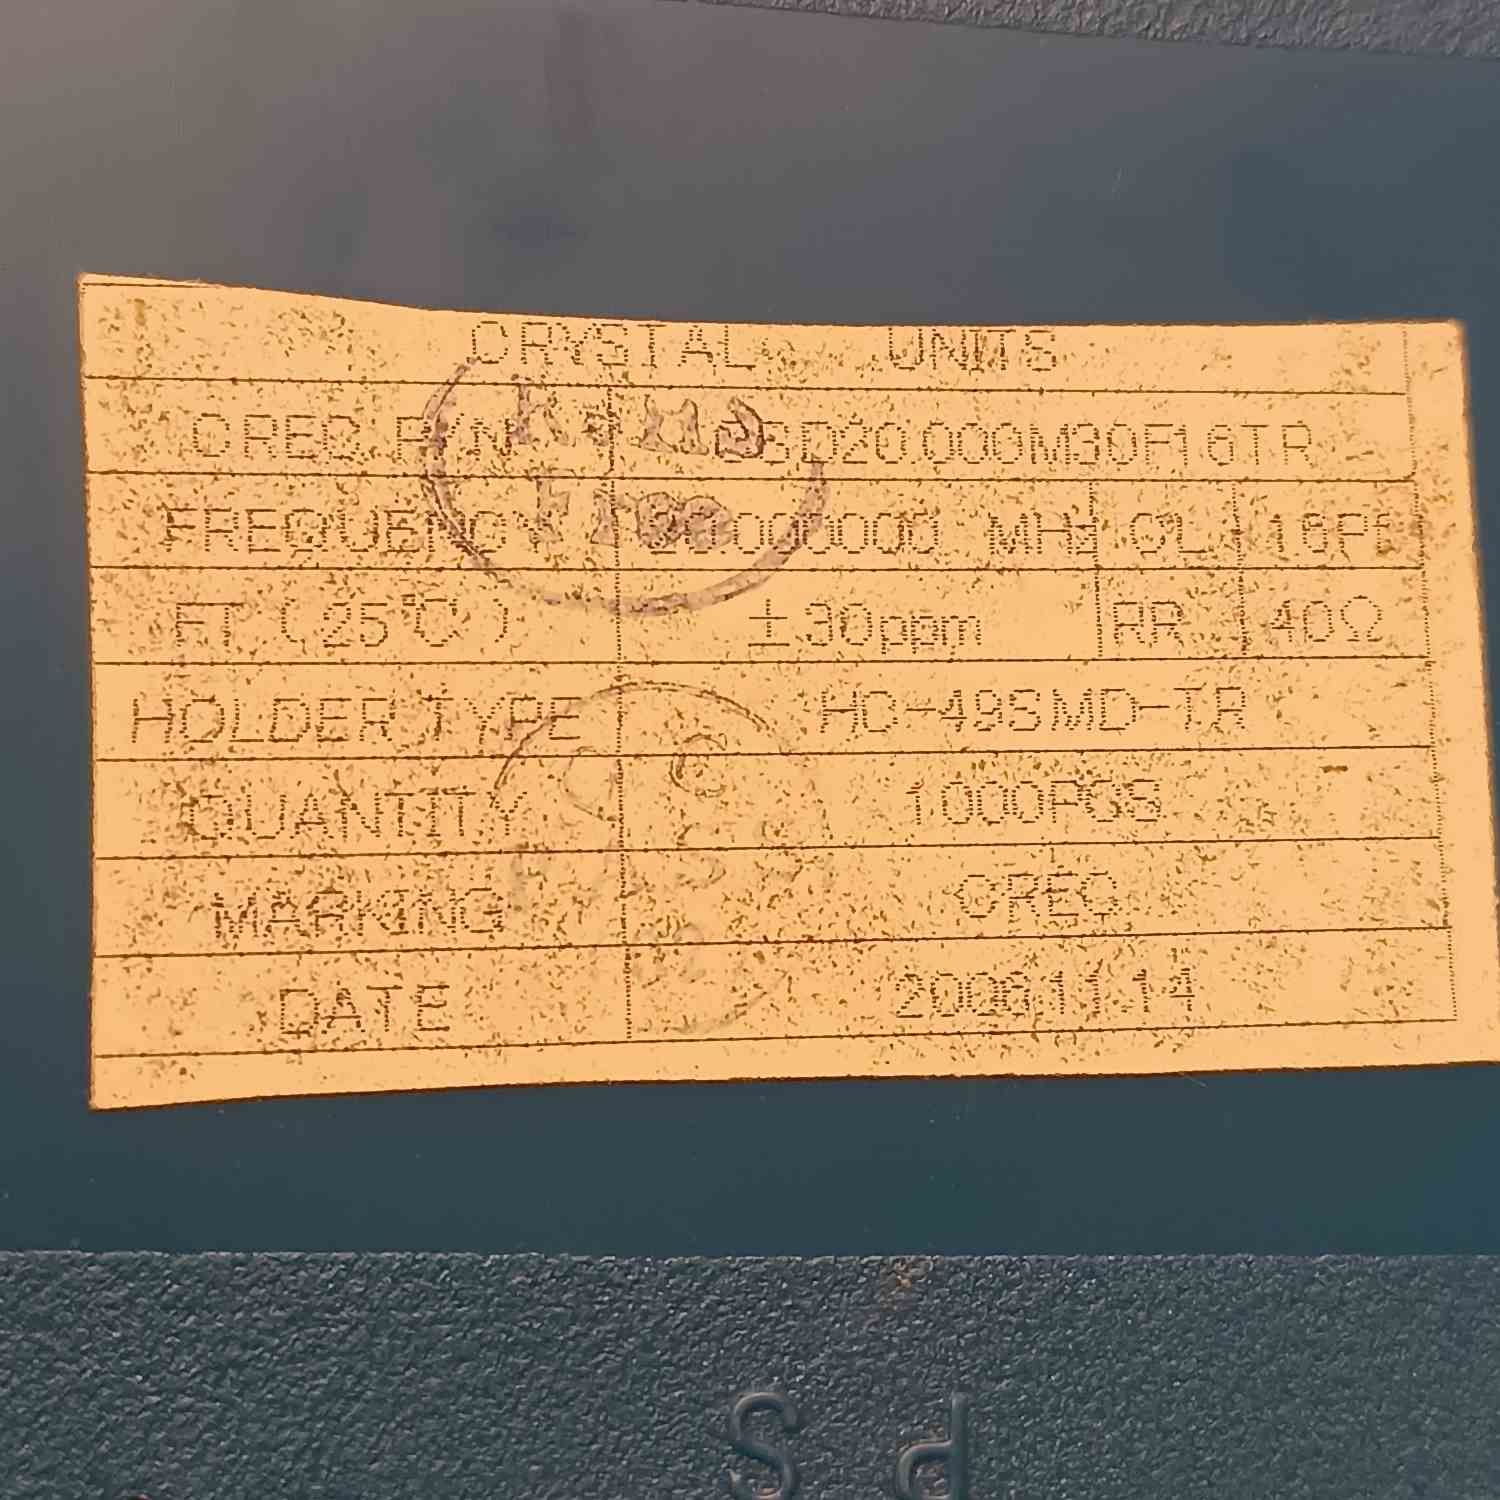 CRYSTAL UNITS
CREC P/N CSD20.000M30F16TR
FREQUENCY 20.000000 MHz CL 16PF
FT (25℃) ±30ppm RR 40Ω
HOLDER TYPE HC-49SMD-TR
QUANTITY 1000PCS
MARKING CREC
DATE